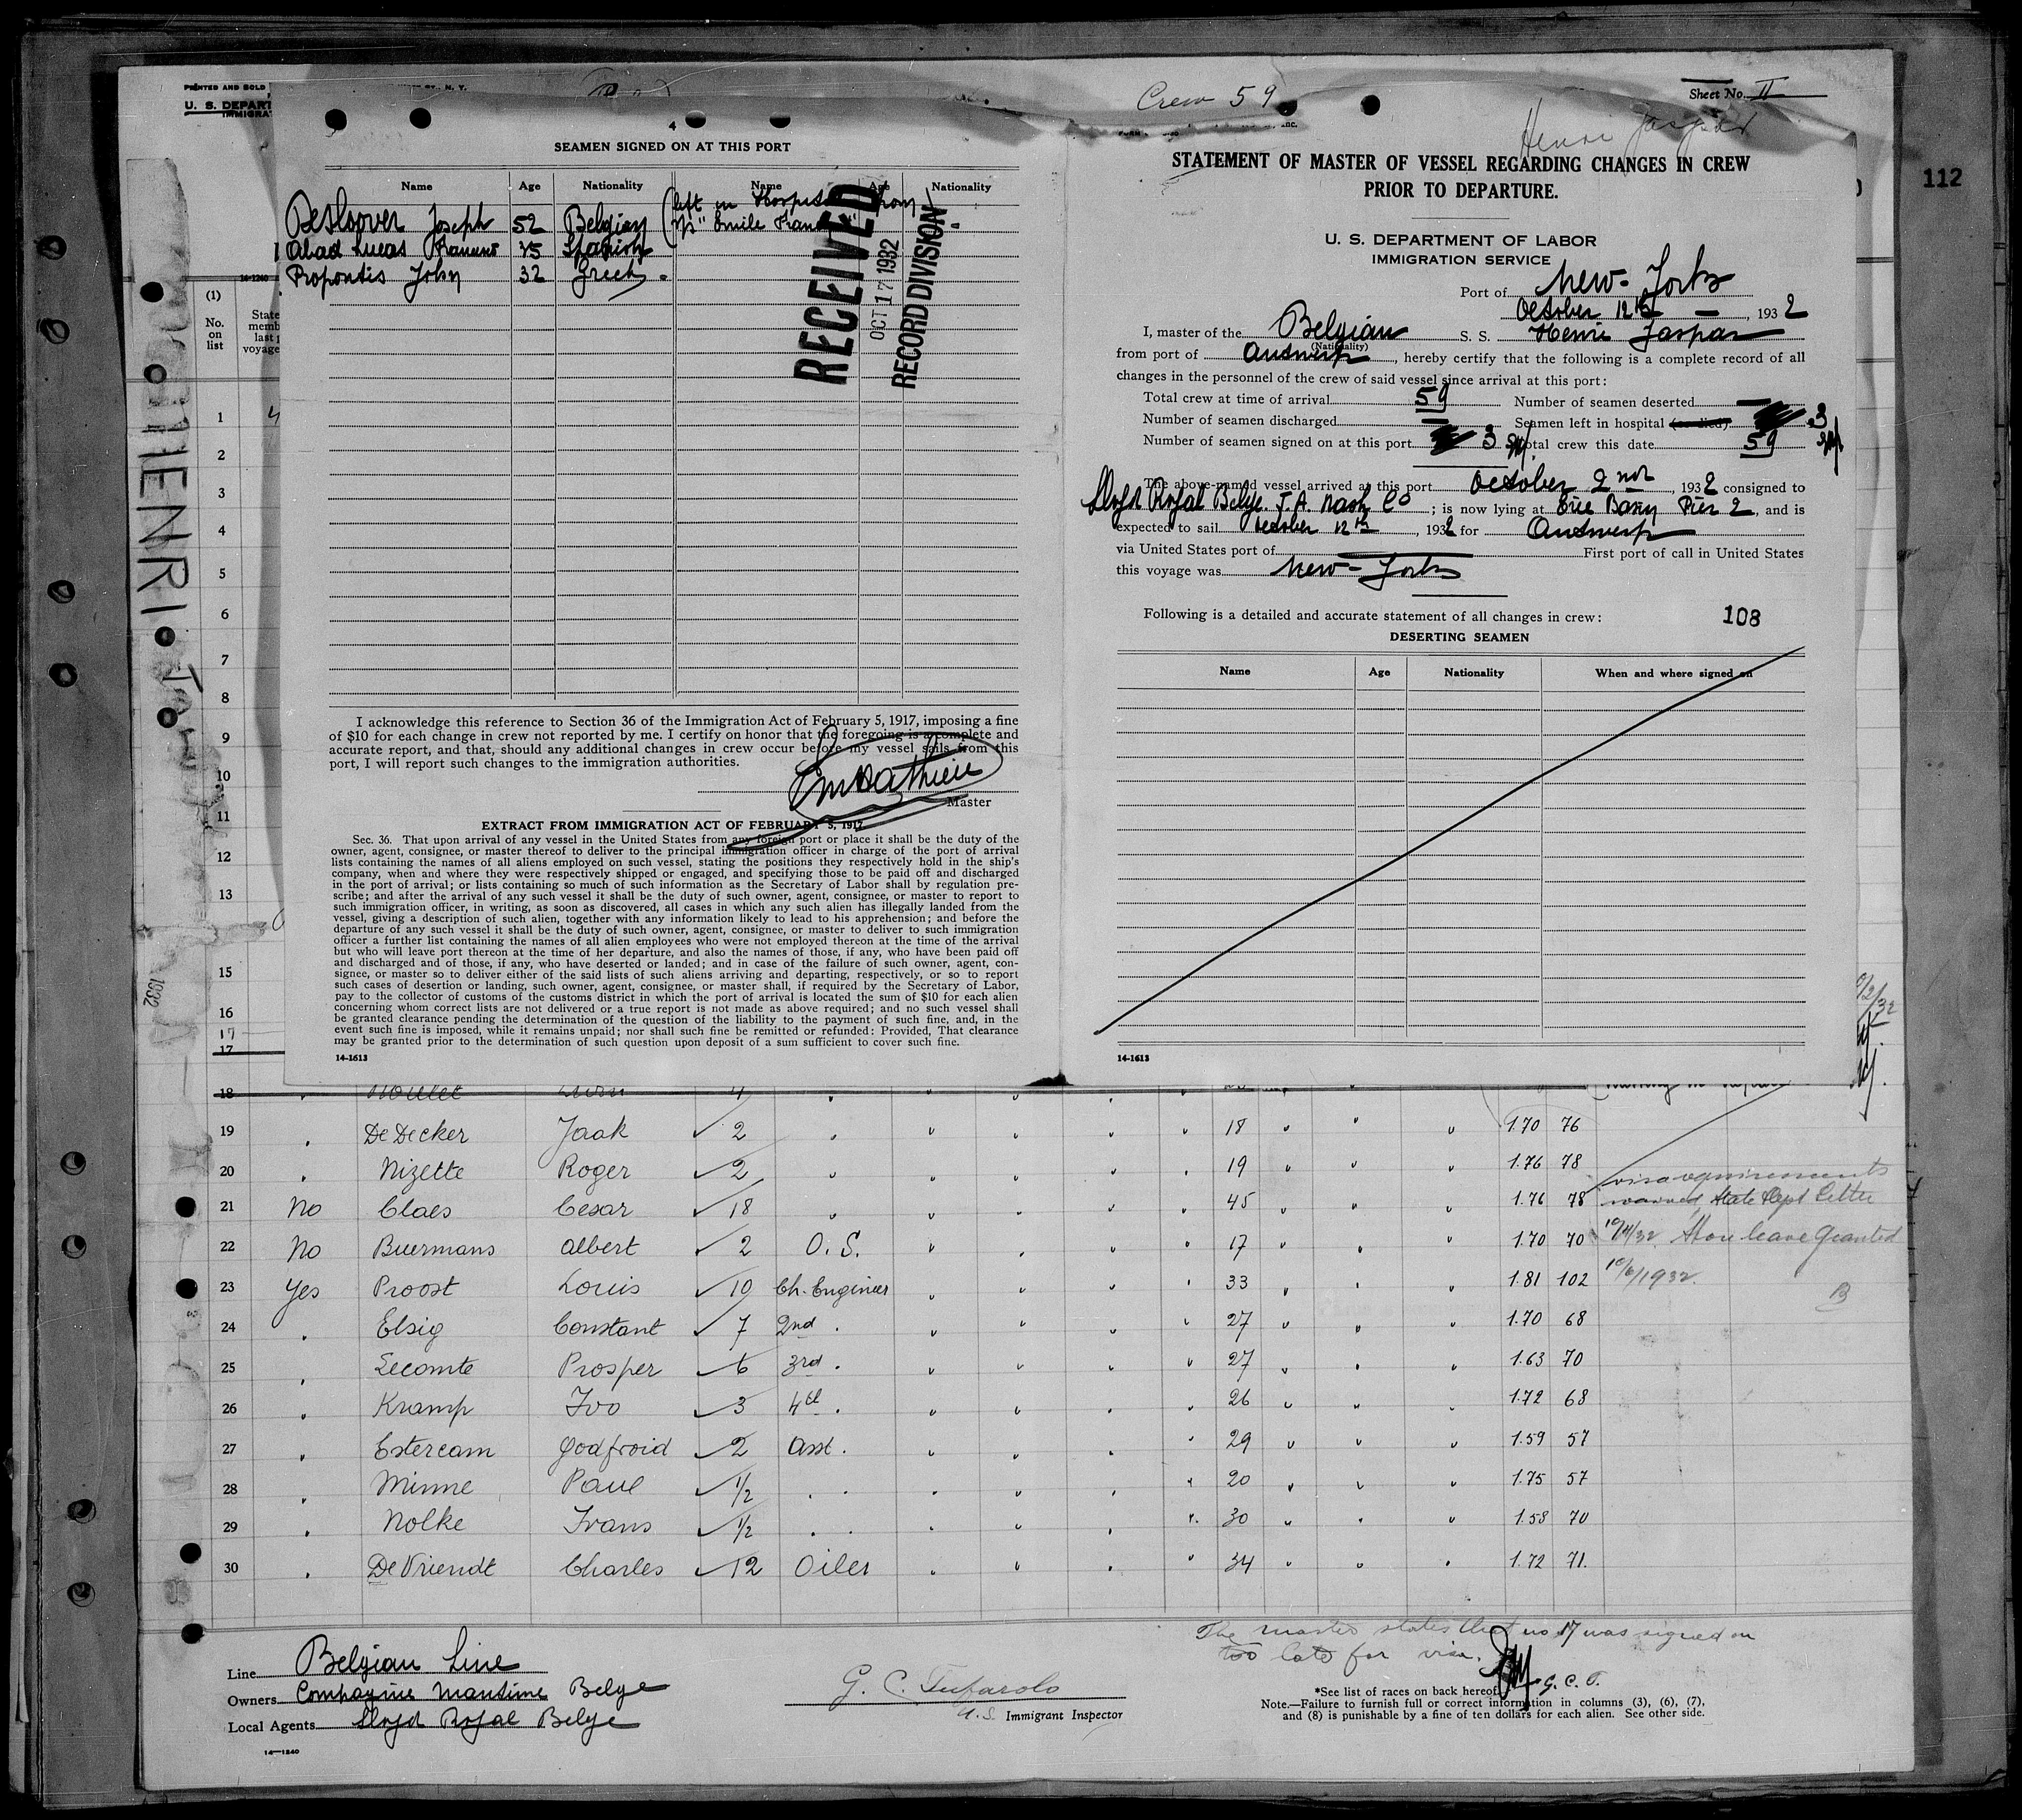 PRINTED AND SOLD
U. S. DEPART
IMMIGRA
4
SEAMEN SIGNED ON AT THIS PORT
Name Age Nationality Name Age Nationality
(left in Hospital from
DeSloover Joseph 52 Belgian "Emile Francqui"
Abad Lucas 45 Spanish
Propontis John 32 Greek
RECEIVED
OCT 17 1932
RECORD DIVISION
I acknowledge this reference to Section 36 of the Immigration Act of February 5, 1917, imposing a fine
of $10 for each change in crew not reported by me. I certify on honor that the foregoing is a complete and
accurate report, and that, should any additional changes in crew occur before my vessel sails from this
port, I will report such changes to the immigration authorities.
Master
EXTRACT FROM IMMIGRATION ACT OF FEBRUARY 5, 1917
Sec. 36. That upon arrival of any vessel in the United States from any foreign port or place it shall be the duty of the
owner, agent, consignee, or master thereof to deliver to the principal immigration officer in charge of the port of arrival
lists containing the names of all aliens employed on such vessel, stating the positions they respectively hold in the ship's
company, when and where they were respectively shipped or engaged, and specifying those to be paid off and discharged
in the port of arrival; or lists containing so much of such information as the Secretary of Labor shall by regulation pre-
scribe; and after the arrival of any such vessel it shall be the duty of such owner, agent, consignee, or master to report to
such immigration officer, in writing, as soon as discovered, all cases in which any such alien has illegally landed from the
vessel, giving a description of such alien, together with any information likely to lead to his apprehension; and before the
departure of any such vessel it shall be the duty of such owner, agent, consignee, or master to deliver to such immigration
officer a further list containing the names of all alien employees who were not employed thereon at the time of the arrival
but who will leave port thereon at the time of her departure, and also the names of those, if any, who have been paid off
and discharged and of those, if any, who have deserted or landed; and in case of the failure of such owner, agent, con-
signee, or master so to deliver either of the said lists of such aliens arriving and departing, respectively, or so to report
such cases of desertion or landing, such owner, agent, consignee, or master shall, if required by the Secretary of Labor,
pay to the collector of customs of the customs district in which the port of arrival is located the sum of $10 for each alien
concerning whom correct lists are not delivered or a true report is not made as above required; and no such vessel shall
be granted clearance pending the determination of the question of the liability to the payment of such fine, and, in the
event such fine is imposed, while it remains unpaid; nor shall such fine be remitted or refunded: Provided, That clearance
may be granted prior to the determination of such question upon deposit of a sum sufficient to cover such fine.
14-1613
Crew 59
Sheet No. II
Henri Jaspar
112
STATEMENT OF MASTER OF VESSEL REGARDING CHANGES IN CREW
PRIOR TO DEPARTURE.
U. S. DEPARTMENT OF LABOR
IMMIGRATION SERVICE
Port of New-York
October 12th, 1932
I, master of the Belgian S. S. Henri Jaspar
(Nationality)
from port of Antwerp, hereby certify that the following is a complete record of all
changes in the personnel of the crew of said vessel since arrival at this port:
Total crew at time of arrival 59 Number of seamen deserted —
Number of seamen discharged — Seamen left in hospital (or died) 3
Number of seamen signed on at this port 3 Total crew this date 59
The above-named vessel arrived at this port October 2nd, 1932 consigned to
Lloyd Royal Belge. J. A. Nash Co; is now lying at Erie Basin Pier 2, and is
expected to sail October 12th, 1932 for Antwerp
via United States port of — First port of call in United States
this voyage was New-York
Following is a detailed and accurate statement of all changes in crew:
108
DESERTING SEAMEN
Name Age Nationality When and where signed on
14-1613
HENRI Jaspar
1932
14-1240
(1)
No. on list
State
memb
last
voyage
1 4
2
3
4
5
6
7
8
9
10
11
12
13
15
16
17
17
18
19 " De Decker Jaak 2 " " " " " 18 " " " 1.70 76
20 " Nizette Roger 2 " " " " 19 " " " 1.76 78
21 No Claes Cesar 18 " " " " " 45 " " " 1.76 78
22 No Buermans Albert 2 O. S. " " " " 17 " " " 1.70 70
23 Yes Proost Louis 10 Ch. Engineer " " " " 33 " " " 1.81 102
24 " Elsig Constant 7 2nd " " " " " 27 " " " 1.70 68
25 " Lecomte Prosper 6 3rd " " " " " 27 " " " 1.63 70
26 " Kramp Ivo 3 4th " " " " " 26 " " " 1.72 68
27 " Estercam Godfroid 2 Asst. " " " " 29 " " " 1.59 57
28 " Minne Paul 1/2 " " " " " " 20 " " " 1.75 57
29 " Nolke Frans 1/2 " " " " " " 30 " " " 1.58 70
30 " De Vriendt Charles 12 Oiler " " " " 34 " " " 1.72 71
visa requirements
waived, State Dept letter
Shore leave granted
10/6/1932.
B
The master states that no 17 was signed on
too late for visa.
G. C. T.
Line Belgian Line
Owners Compagnie Maritime Belge
Local Agents Lloyd Royal Belge
14—1240
G. C. Tufarolo
U.S. Immigrant Inspector
*See list of races on back hereof.
Note.—Failure to furnish full or correct information in columns (3), (6), (7),
and (8) is punishable by a fine of ten dollars for each alien. See other side.